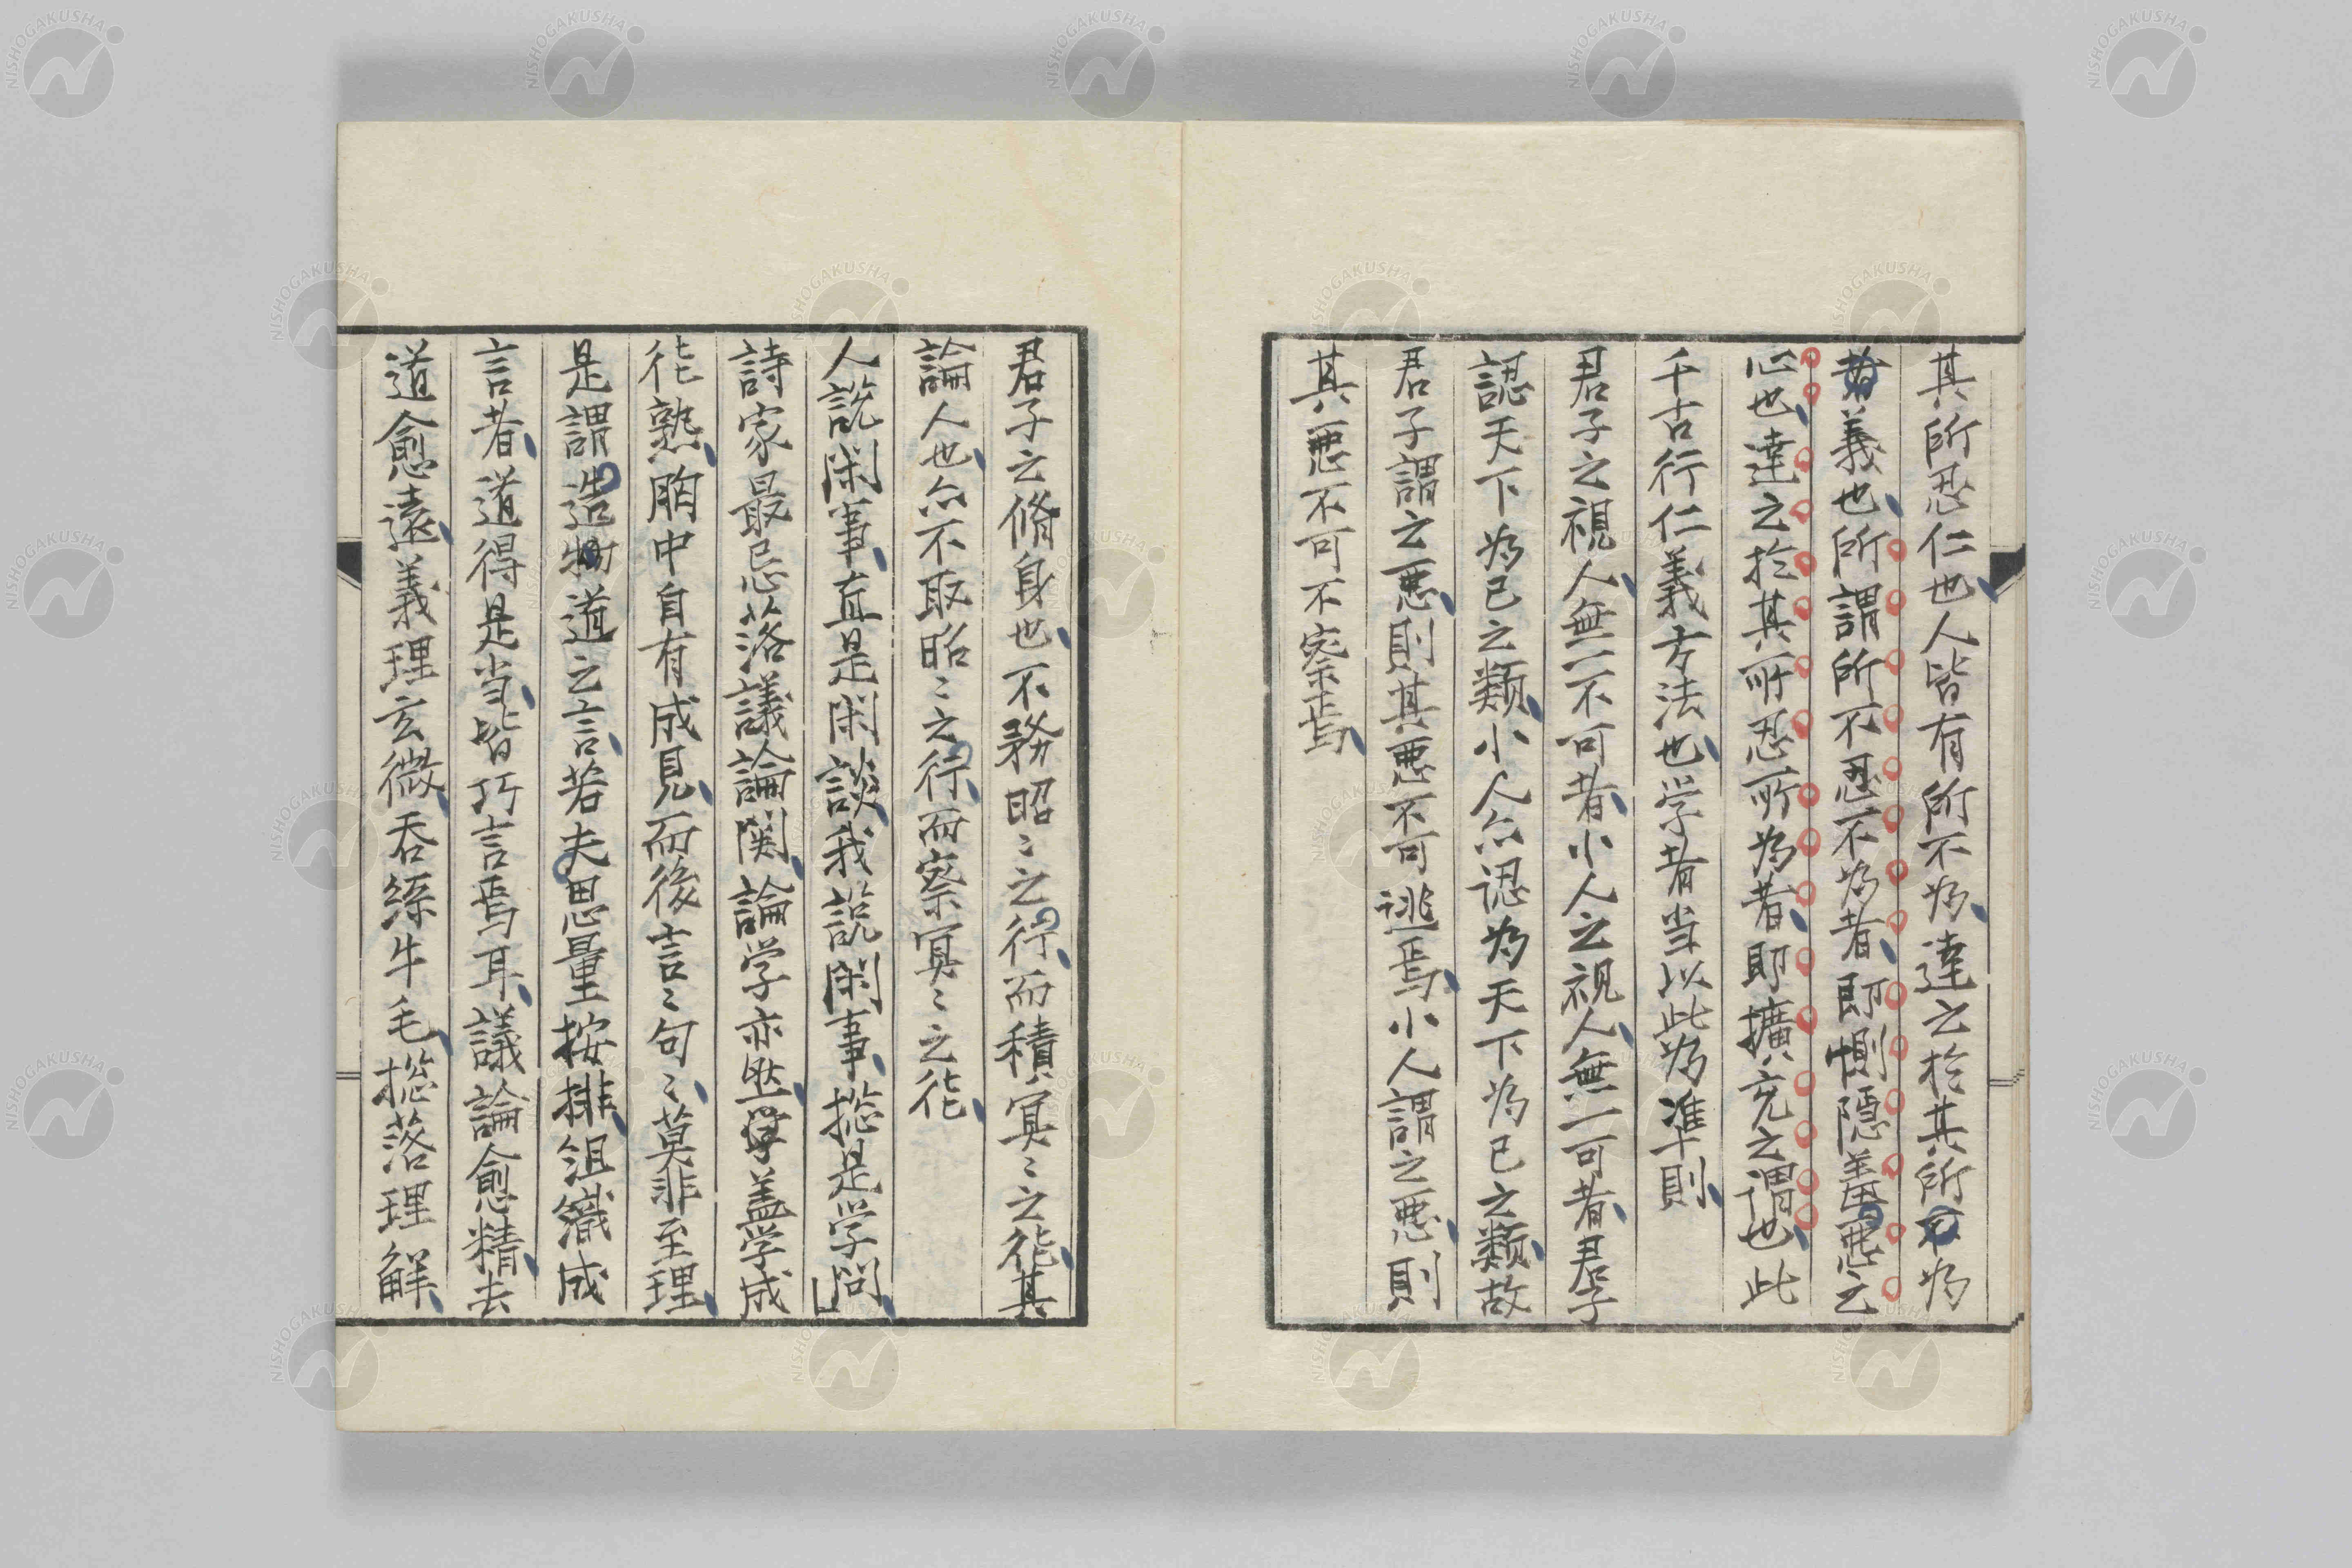 其所忍仁也人皆有所不為達之於其所為
義也所謂所不忍不為者即惻隱羞悪之
心也達之於其所忍所為者即擴充之謂也此
千古行仁義方法也学者当以此為準則
君子之視人無一不可者小人之視人無一可者君子
認天下為已之類小人亦認為天下為已之類故
君子謂之悪則其悪不可逃焉小人謂之悪則
其悪不可不察焉
君子之脩身也不務昭〻之行而積冥〻之徳其
論人也亦不取昭〻之行而察冥〻之徳
人說閑事直是閑談我說閑事揔是学問
詩家最忌落議論関論学亦然盖学成
徳熟胸中自有成見而後言〻句〻莫非至理
是謂造物道之言若夫思量按排組織成
言者道得是当皆巧言焉耳議論愈精去
道愈遠義理玄微吞絲牛毛揔落理解
NISHOGAKUSHA